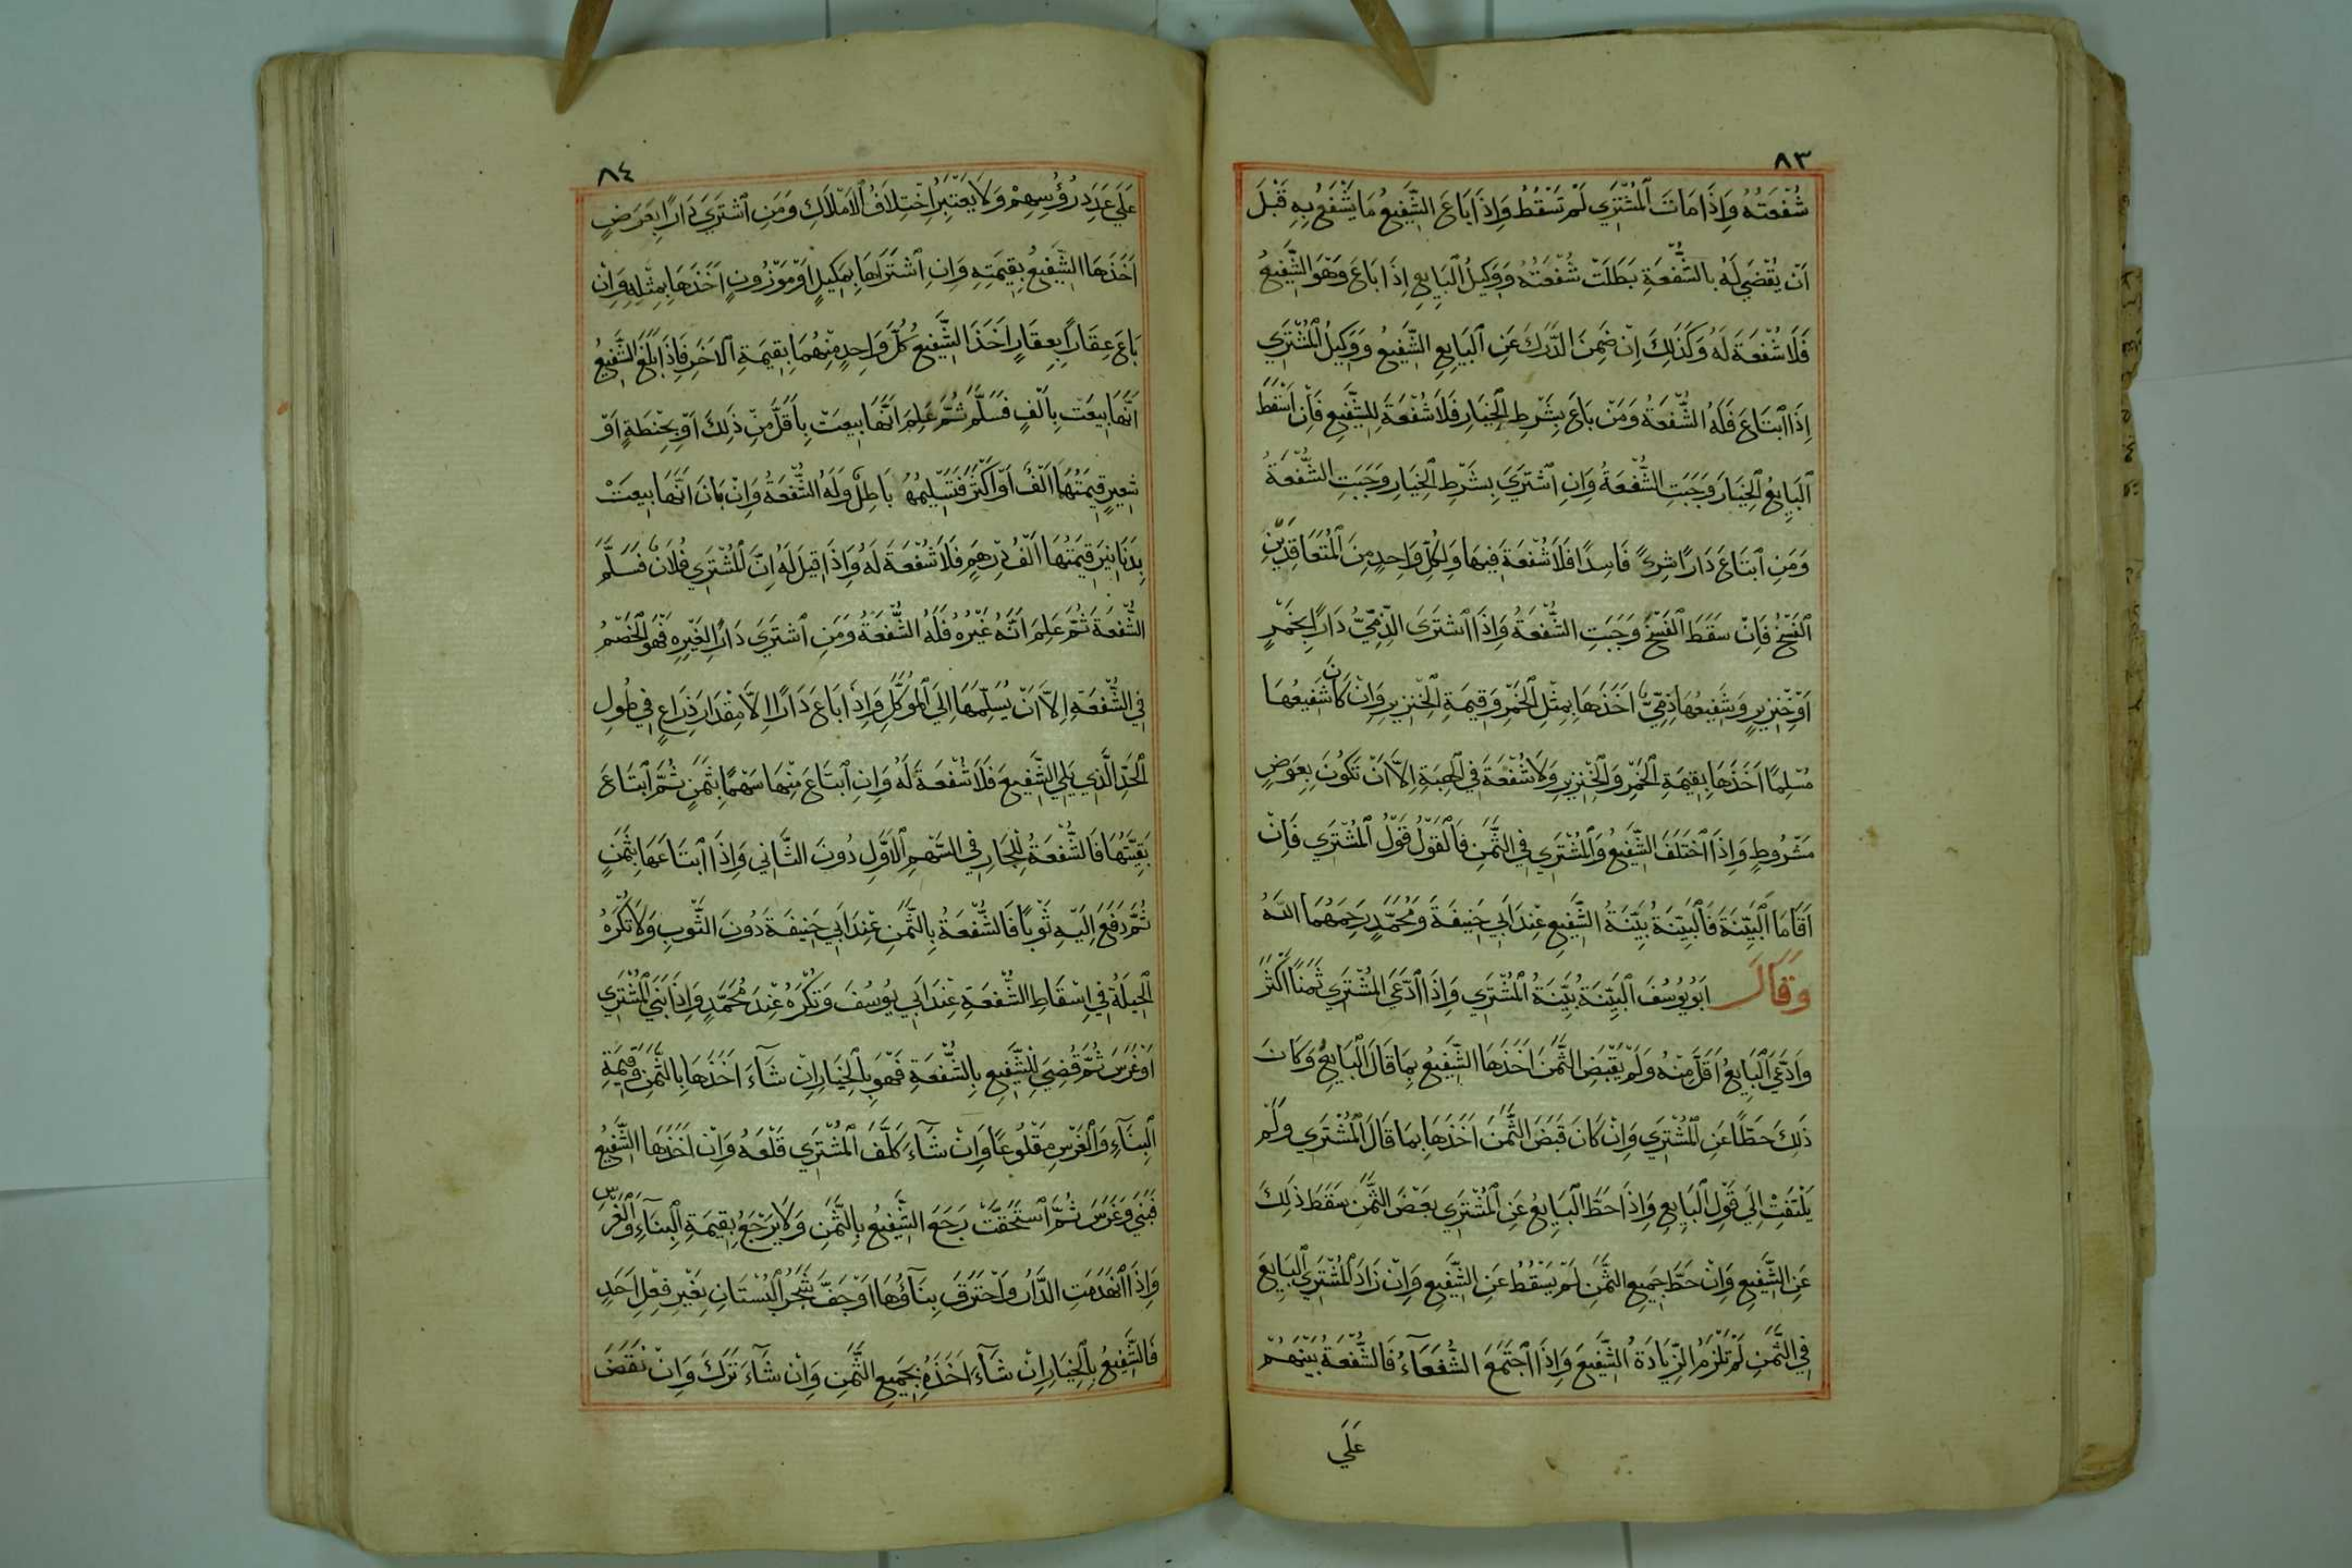 ٨٣
شُفْعَتُهُ وَاِذَا مَاتَ الْمُشْتَرِي لَمْ تَسْقُطْ وَاِذَا بَاعَ الشَّفِيعُ مَا يَشْفَعُ بِهِ قَبْلَ
اَنْ يُقْضَي لَهُ بِالشُّفْعَةِ بَطَلَتْ شُفْعَتُهُ وَوَكِيلُ الْبَايِعِ اِذَا بَاعَ وَهُوَ الشَّفِيعُ
فَلَا شُفْعَةَ لَهُ وَكَذَالِكَ اِنْ ضَمِنَ الدَّرَكَ عَنِ الْبَايِعِ الشَّفِيعُ وَوَكِيلُ الْمُشْتَرِي
اِذَا ابْتَاعَ فَلَهُ الشُّفْعَةُ وَمَنْ بَاعَ بِشَرْطِ الْخِيَارِ فَلَا شُفْعَةَ لِلشَّفِيعِ فَاِنْ اَسْقَطَ
الْبَايِعُ الْخِيَارَ وَجَبَتِ الشُّفْعَةُ وَاِنِ اشْتَرَيَ بِشَرْطِ الْخِيَارِ وَجَبَتِ الشُّفْعَةُ
وَمَنِ ابْتَاعَ دَارًا شِرِيً فَاسِدًا فَلَا شُفْعَةَ فِيهَا وَلِكُلِّ وَاحِدٍ مِنَ الْمُتَعَاقِدَيْنِ
الْفَسْخُ فَاِنْ سَقَطَ الْفَسْخُ وَجَبَتِ الشُّفْعَةُ وَاِذَا اشْتَرَى الذِّمِّيُّ دَارًا بِخَمْرٍ
اَوْ خِنْزِيرٍ وَشَفِيعُهَا ذِمِّيٌّ اَخَذَهَا بِمِثْلِ الْخَمْرِ وَقِيمَةِ الْخِنْزِيرِ وَاِنْ كَانَ شَفِيعُهَا
مُسْلِمًا اَخَذَهَا بِقِيمَةِ الْخَمْرِ وَالْخِنْزِيرِ وَلَا شُفْعَةَ فِي الْهِبَةِ اِلَّا اَنْ تَكُونَ بِعِوَضٍ
مَشْرُوطٍ وَاِذَا اخْتَلَفَ الشَّفِيعُ وَالْمُشْتَرِي فِي الثَّمَنِ فَالْقَوْلُ قَوْلُ الْمُشْتَرِي فَاِنْ
اَقَامَا الْبَيِّنَةَ فَالْبَيِّنَةُ بَيِّنَةُ الشَّفِيعِ عِنْدَ اَبِي حَنِيفَةَ وَمُحَمَّدٍ رَحِمَهُمَا اللّٰهُ
وَقَالَ اَبُو يُوسُفَ الْبَيِّنَةُ بَيِّنَةُ الْمُشْتَرِي وَاِذَا ادَّعَيَ الْمُشْتَرِي ثَمَنًا اَكْثَرَ
وَادَّعَيَ الْبَايِعُ اَقَلَّ مِنْهُ وَلَمْ يَقْبِضِ الثَّمَنَ اَخَذَهَا الشَّفِيعُ بِمَا قَالَ الْبَايِعُ وَكَانَ
ذٰلِكَ حَطًّا عَنِ الْمُشْتَرِي وَاِنْ كَانَ قَبَضَ الثَّمَنَ اَخَذَهَا بِمَا قَالَ الْمُشْتَرِي وَلَمْ
يَلْتَفِتْ اِلَي قَوْلِ الْبَايِعِ وَاِذَا حَطَّ الْبَايِعُ عَنِ الْمُشْتَرِي بَعْضَ الثَّمَنِ سَقَطَ ذٰلِكَ
عَنِ الشَّفِيعِ وَاِنْ حَطَّ جَمِيعَ الثَّمَنِ لَمْ يَسْقُطْ عَنِ الشَّفِيعِ وَاِنْ زَادَ الْمُشْتَرِي الْبَايِعَ
فِي الثَّمَنِ لَمْ تَلْزَمُ الزِّيَادَةُ الشَّفِيعَ وَاِذَا اجْتَمَعَ الشُّفَعَآءُ فَالشُّفْعَةُ بَيْنَهُمْ
عَلَي
٨٤
عَلَي عَدَدِ رُؤُسِهِمْ وَلَا يُعْتَبَرُ اخْتِلَافُ الْاَمْلَاكِ وَمَنِ اشْتَرَيَ دَارًا بِعَرَضٍ
اَخَذَهَا الشَّفِيعُ بِقِيمَتِهِ وَاِنِ اشْتَرَاهَا بِمَكِيلٍ اَوْ مَوْزُونٍ اَخَذَهَا بِمِثْلِهِ وَاِنْ
بَاعَ عِقَارًا بِعِقَارٍ اَخَذَ الشَّفِيعُ كُلَّ وَاحِدٍ مِنْهُمَا بِقِيمَةِ الْاٰخَرِ فَاِذَا بَلَغَ الشَّفِيعُ
اَنَّهَا بِيعَتْ بِاَلْفٍ فَسَلَّمَ ثُمَّ عَلِمَ اَنَّهَا بِيعَتْ بِاَقَلَّ مِنْ ذٰلِكَ اَوْ بِحِنْطَةٍ اَوْ
شَعِيرٍ قِيمَتُهَا اَلْفٌ اَوْ اَكْثَرُ فَتَسْلِيمُهُ بَاطِلٌ وَلَهُ الشُّفْعَةُ وَاِنْ بَانَ اَنَّهَا بِيعَتْ
بِدَنَانِيرَ قِيمَتُهَا اَلْفُ دِرْهَمٍ فَلَا شُفْعَةَ لَهُ وَاِذَا قِيلَ لَهُ اِنَّ الْمُشْتَرِي فُلَانٌ فَسَلَّمَ
الشُّفْعَةَ ثُمَّ عَلِمَ اَنَّهُ غَيْرُهُ فَلَهُ الشُّفْعَةُ وَمَنِ اشْتَرَيَ دَارًا لِغَيْرِهِ فَهُوَ الْخَصْمُ
فِي الشُّفْعَةِ اِلَّا اَنْ يُسَلِّمَهَا اِلَي الْمُوَكِّلِ وَاِذَا بَاعَ دَارًا اِلَّا مِقْدَارَ ذِرَاعٍ فِي طُولِ
الْحَدِّ الَّذِي يَلِي الشَّفِيعَ فَلَا شُفْعَةَ لَهُ وَاِنِ ابْتَاعَ مِنْهَا سَهْمًا بِثَمَنٍ ثُمَّ ابْتَاعَ
بَقِيَّتَهَا فَالشُّفْعَةُ لِلْجَارِ فِي السَّهْمِ الْاَوَّلِ دُونَ الثَّانِي وَاِذَا ابْتَاعَهَا بِثَمَنٍ
ثُمَّ دَفَعَ اِلَيْهِ ثَوْبًا فَالشُّفْعَةُ بِالثَّمَنِ عِنْدَ اَبِي حَنِيفَةَ دُونَ الثَّوْبِ وَلَا تُكْرَهُ
الْحِيلَةُ فِي اِسْقَاطِ الشُّفْعَةِ عِنْدَ اَبِي يُوسُفَ وَتُكْرَهُ عِنْدَ مُحَمَّدٍ وَاِذَا بَنَيَ الْمُشْتَرِي
اَوْ غَرَسَ ثُمَّ قُضِيَ لِلشَّفِيعِ بِالشُّفْعَةِ فَهُوَ بِالْخِيَارِ اِنْ شَآءَ اَخَذَهَا بِالثَّمَنِ وَقِيمَةِ
الْبِنَآءِ وَالْغَرْسِ مَقْلُوعًا وَاِنْ شَآءَ كَلَّفَ الْمُشْتَرِي قَلْعَهُ وَاِنْ اَخَذَهَا الشَّفِيعُ
فَبَنَي وَغَرَسَ ثُمَّ اسْتُحِقَّتْ رَجَعَ الشَّفِيعُ بِالثَّمَنِ وَلَا يَرْجِعُ بِقِيمَةِ الْبِنَآءِ وَالْغَرْسِ
وَاِذَا انْهَدَمَتِ الدَّارُ وَاحْتَرَقَ بِنَآؤُهَا اَوْ جَفَّ شَجَرُ الْبُسْتَانِ بِغَيْرِ فِعْلِ اَحَدٍ
فَالشَّفِيعُ بِالْخِيَارِ اِنْ شَآءَ اَخَذَهُ بِجَمِيعِ الثَّمَنِ وَاِنْ شَآءَ تَرَكَ وَاِنْ نَقَضَ